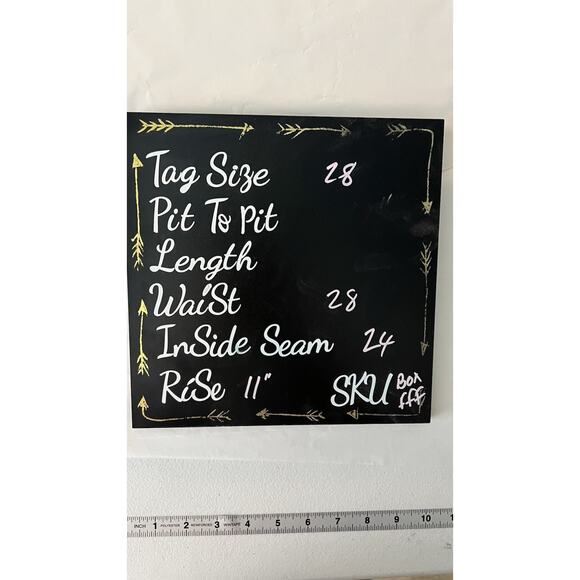 Tag Size 28
Pit To Pit
Length
Waist 28
InSide Seam 24
RiSe 11" SKU Box
fff
INCH 1 POLYESTER 2 REINFORCED 3 WINTAPE 4 5 6 7 8 9 10